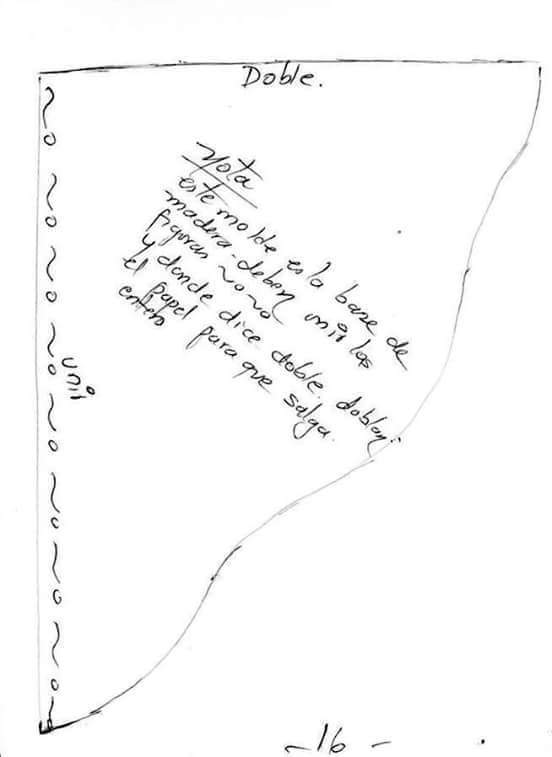 Doble.
Nota
este molde es la base de
madera - deben unir las
figuras ~o~o
y donde dice doble. doblan.
el papel para que salga.
entero
unir
-16-